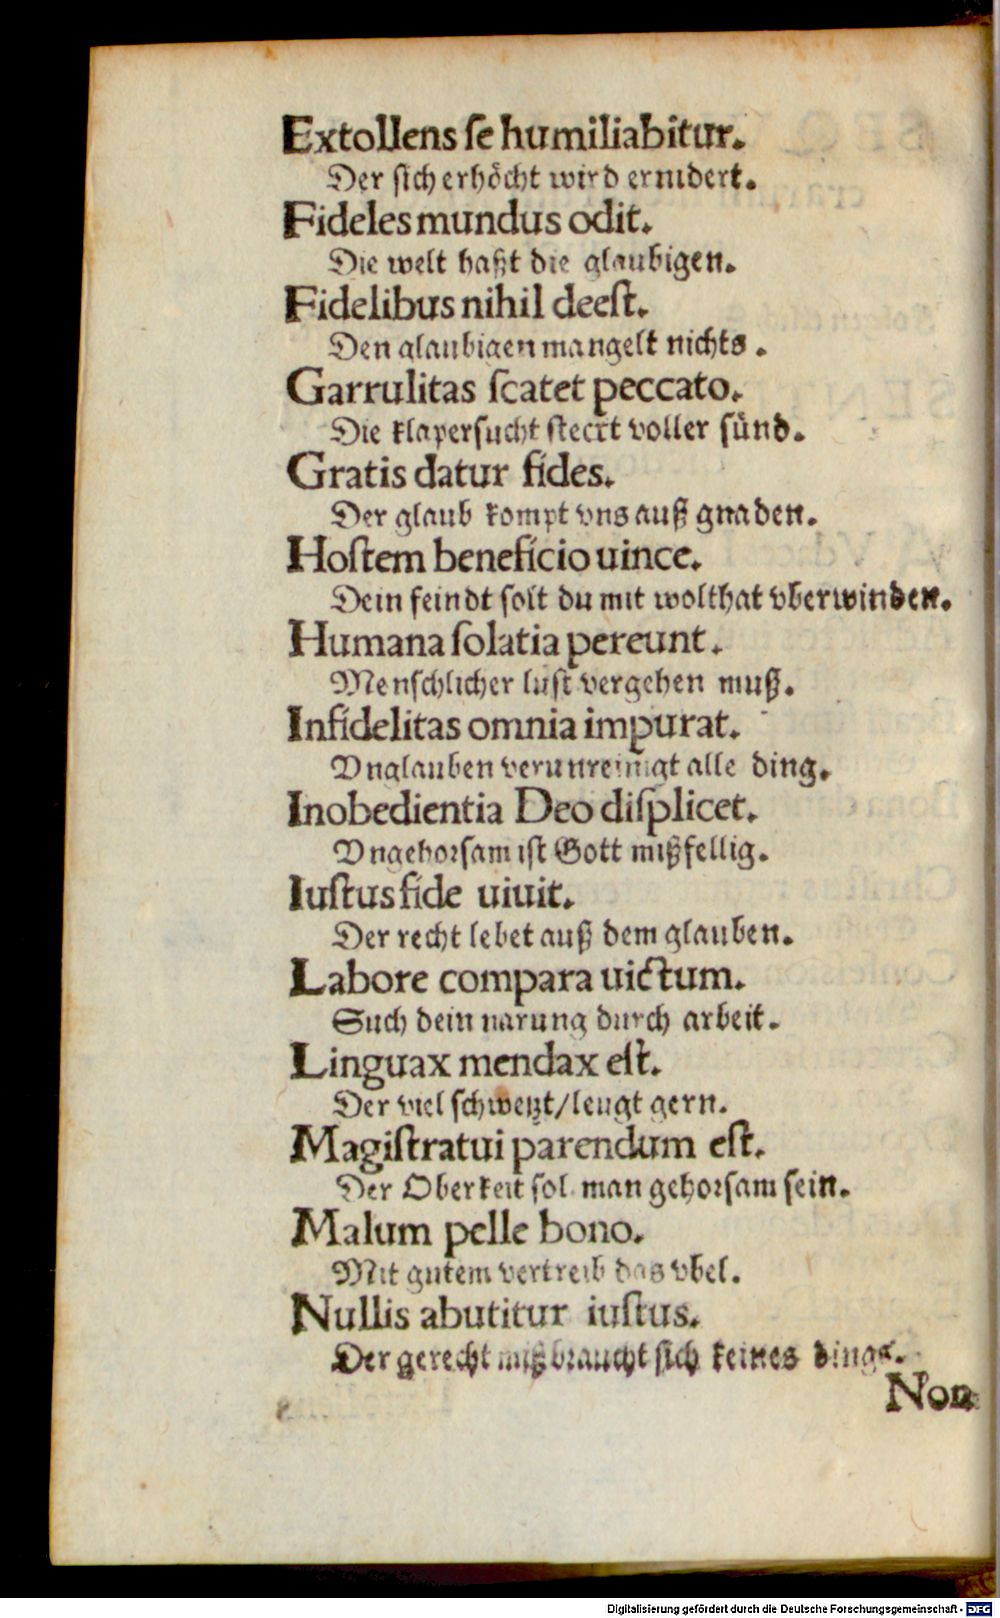 Extollens ſe humiliabitur.
Der ſich erhöcht wird ernidert.
Fideles mundus odit.
Die welt haßt die glaubigen.
Fidelibus nihil deeſt.
Den glaubigen mangelt nichts.
Garrulitas ſcatet peccato.
Die klapersucht ſteckt voller ſünd.
Gratis datur fides.
Der glaub kompt vns auß gnaden.
Hoſtem beneficio uince.
Dein feindt ſolt du mit wolthat vberwinden.
Humana ſolatia pereunt.
Menſchlicher luſt vergehen muß.
Infidelitas omnia impurat.
Vnglauben verunreinigt alle ding.
Inobedientia Deo diſplicet.
Vngehorſam iſt Gott mißfellig.
Iuſtus fide uiuit.
Der recht lebet auß dem glauben.
Labore compara uictum.
Such dein narung durch arbeit.
Linguax mendax eſt.
Der viel ſchwetzt/leugt gern.
Magiſtratui parendum eſt.
Der Oberkeit ſol man gehorſam ſein.
Malum pelle bono.
Mit gutem vertreib das vbel.
Nullis abutitur iuſtus.
Der gerecht mißbraucht ſich keines dings.
Non
Digitalisierung gefördert durch die Deutsche Forschungsgemeinschaft - DFG